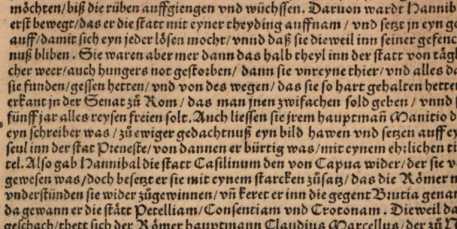 möchten/biß die rüben auffgiengen vnd wüchssen. Daruon wardt Hannib
erst bewegt/das er die statt mit eyner theyding auffnam/ vnd setzt jn eyn ge
auff/damit sich eyn jeder lösen mocht/vnnd daß sie dieweil inn seiner gefenc
nuß bliben. Sie waren aber mer dann das halb theyl inn der statt von täg
cher weer/auch hungers not gestorben/ dann sie vnreyne thier/vnd alles da
sie funden/gessen hetten/vnd von des wegen/das sie so hart gehalten hetten
erkant jn der Senat zů Rom/das man jnen zwifachen sold geben/vnnd
fünff jar alles reysen freien solt. Auch liessen sie jrem hauptman Manitio d
eyn schreiber was/zů ewiger gedachtnuß eyn bild hawen vnd setzen auff ey
seul inn der stat Preneste/von dannen er bürtig was/mit eynem ehrlichen ti
tel. Also gab Hannibal die statt Casilinum den von Capua wider/der sie v
gewesen was/doch besetzt er sie mit eynem starcken zůsatz/das die Römer n
vnderstünden sie wider zůgewinnen/vñ keret er inn die gegent Brutia genat
da gewann er die stätt Petelliam/Consentiam vnd Crotonam. Dieweil da
geschach/thett sich der Römer hauptmann Claudius Marcellus/der zů